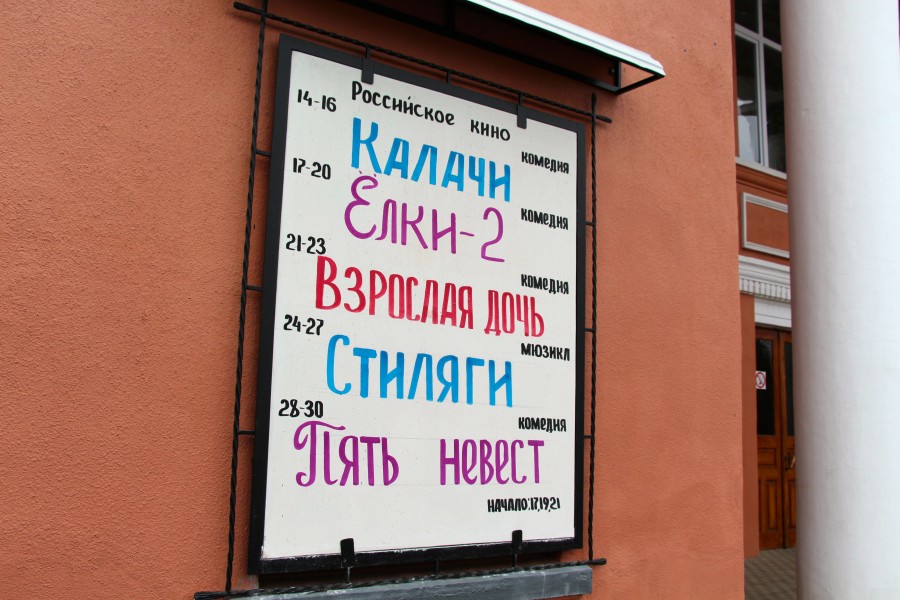 Российское кино
14-16
комедия
Калачи
17-20
комедия
Ёлки-2
21-23
комедия
Взрослая дочь
24-27
мюзикл
Стиляги
28-30
комедия
Пять невест
начало: 17, 19, 21